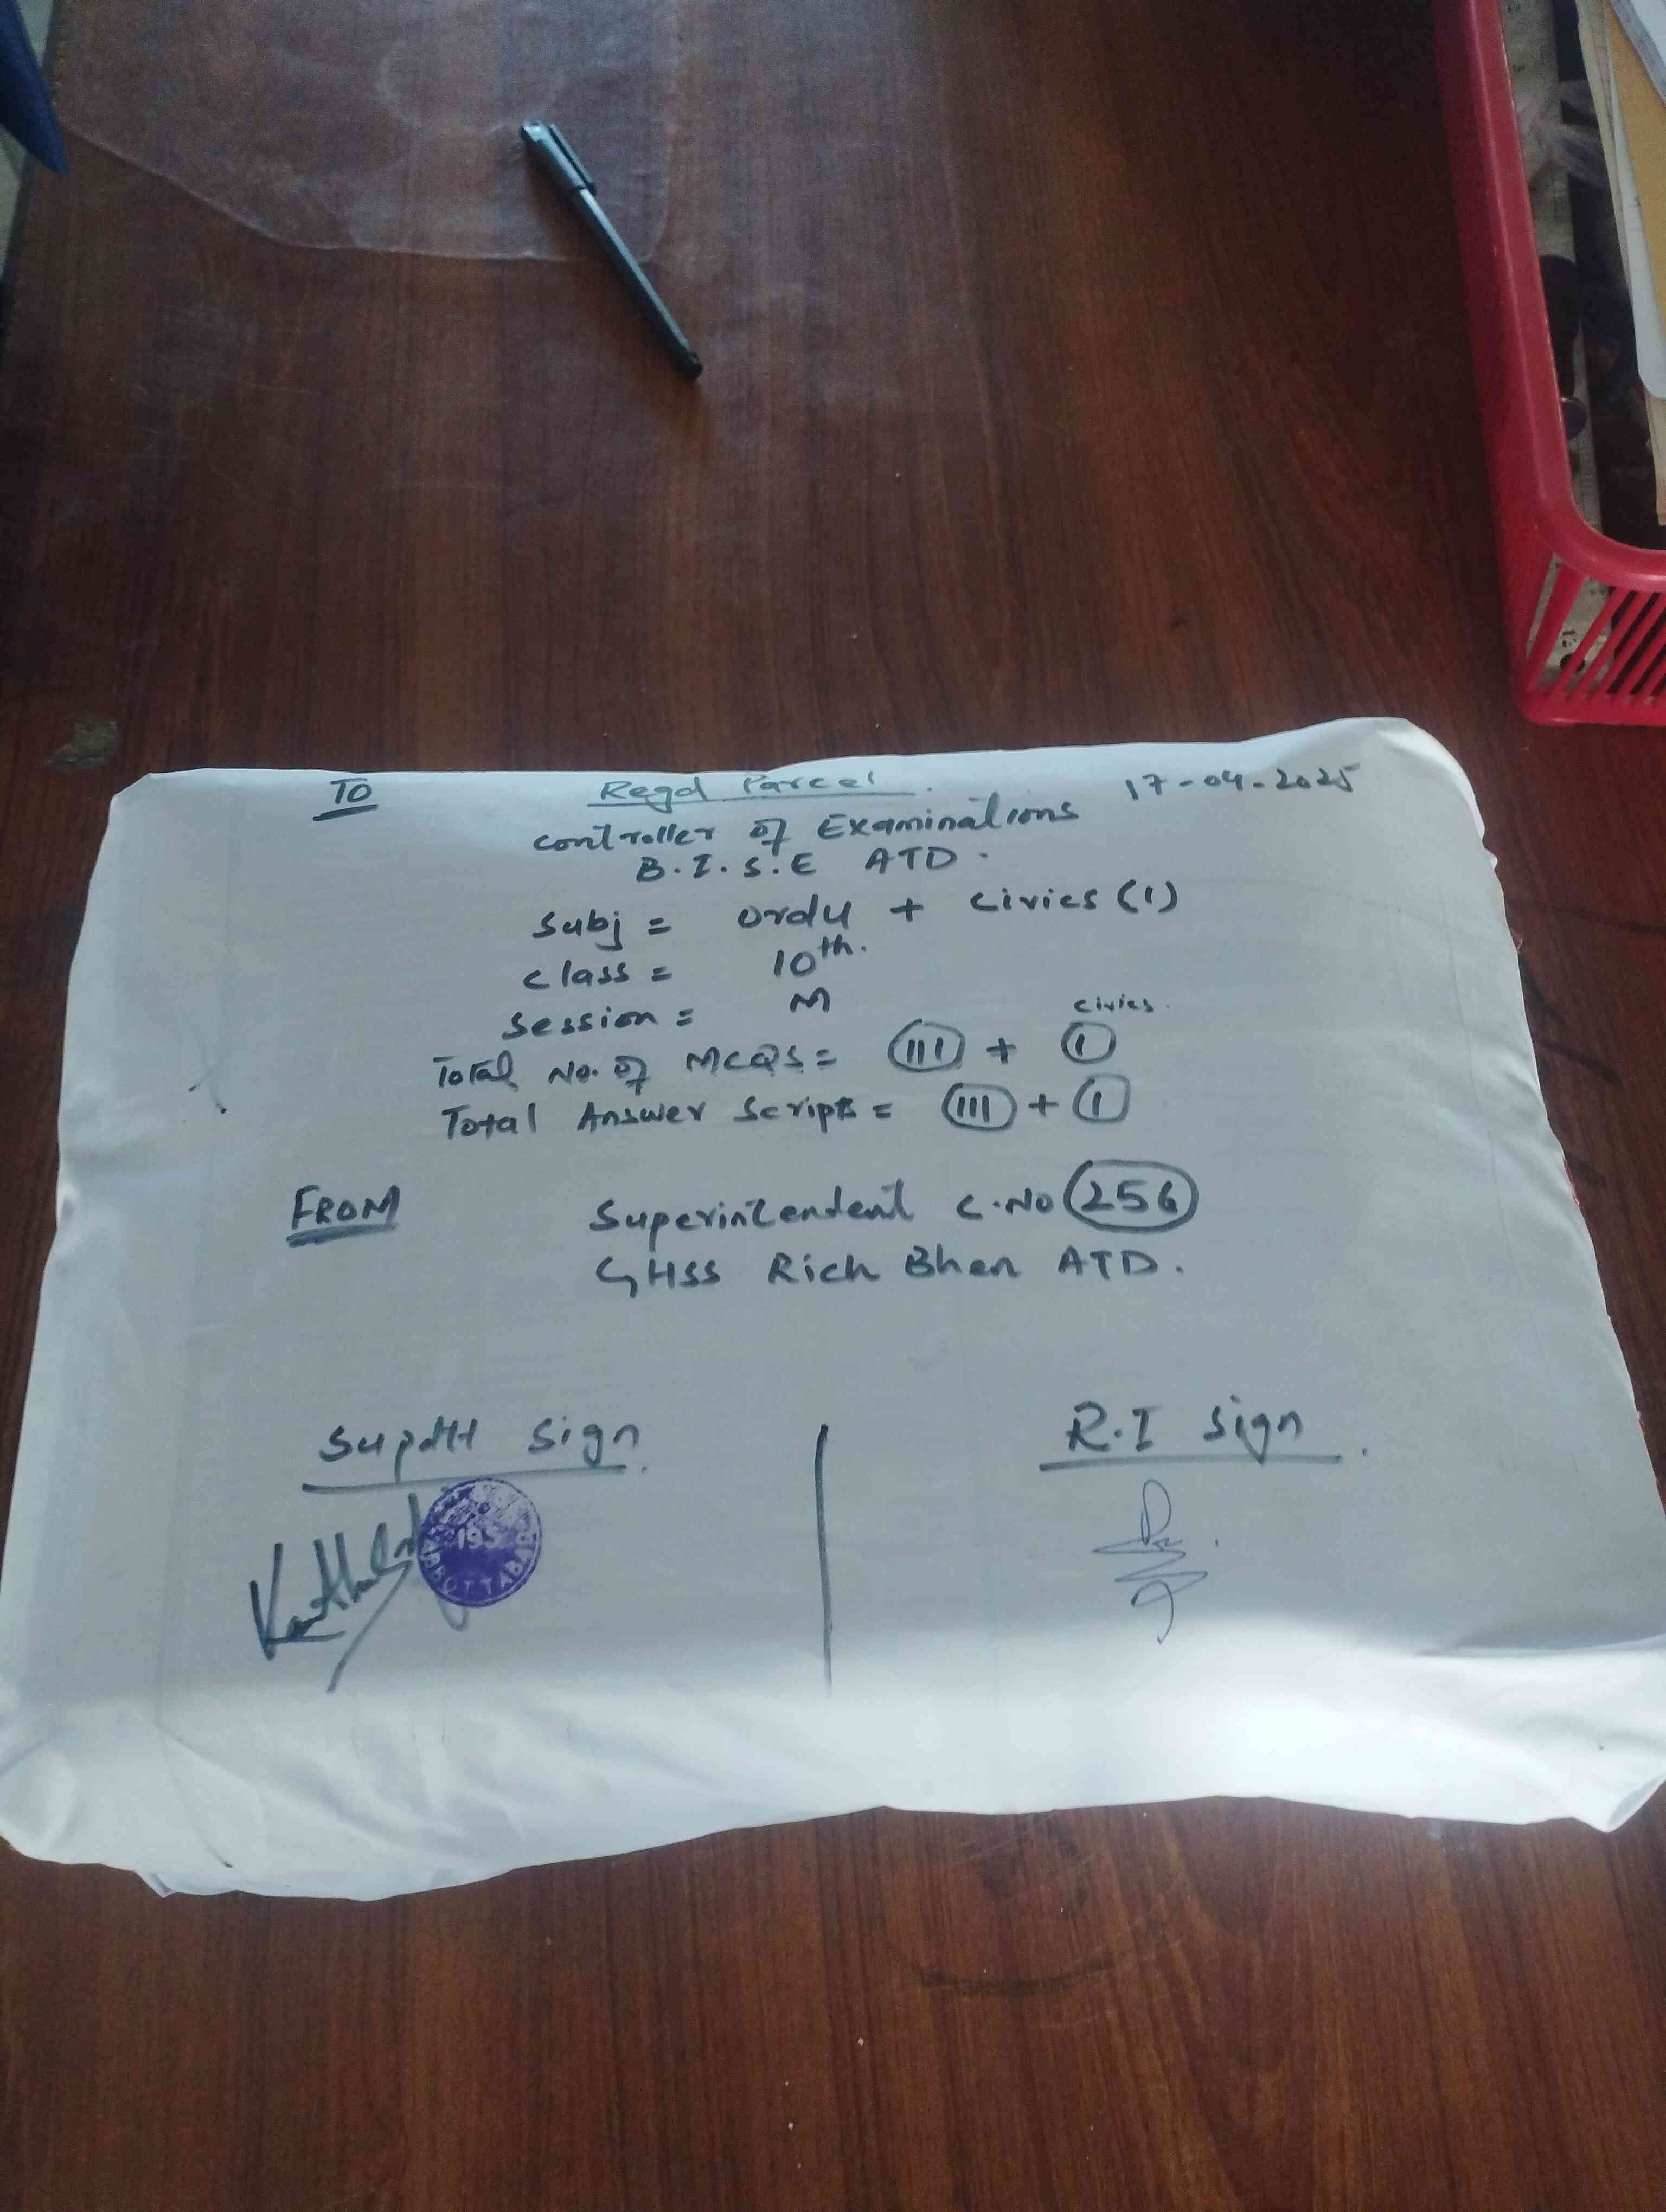 TO Regd Parcel. 17-04-2025
Controller of Examinations
B.I.S.E ATD.
Subj = Urdu + Civics (1)
Class = 10th.
Session = M
Civics.
Total No. of MCQS = 111 + 1
Total Answer Scripts = 111 + 1
FROM Superintendent C.No 256
GHSS Rich Bhen ATD.
Supdtt Sign. R.I Sign.
ABBOTTABAD